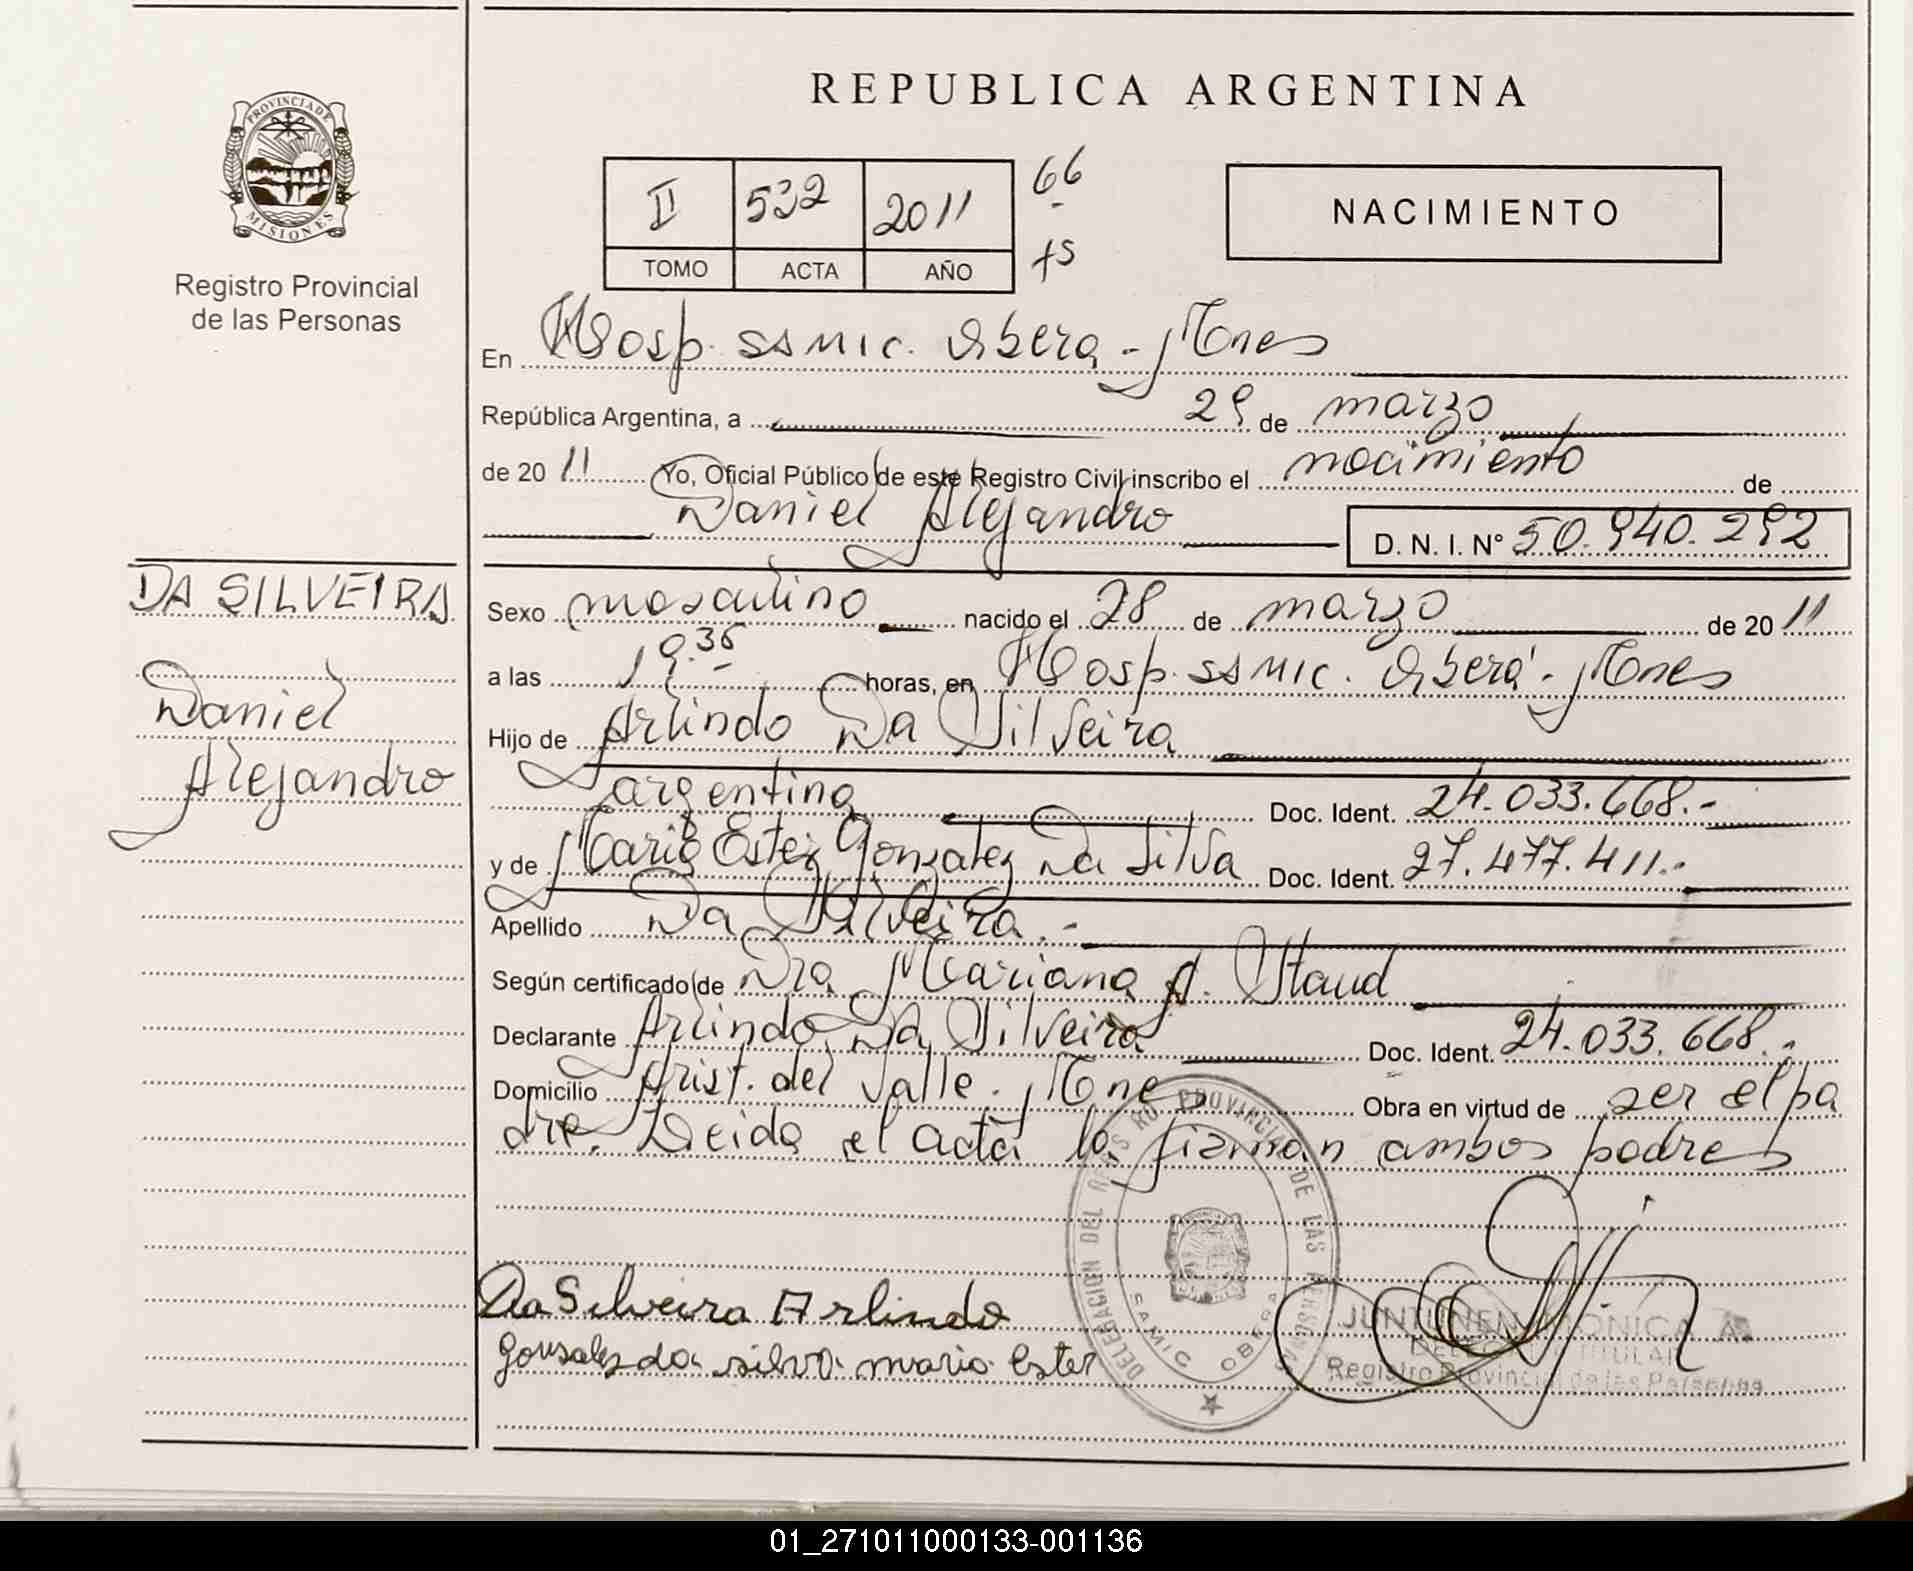 REPUBLICA ARGENTINA
PROVINCIA DE
MISIONES
Registro Provincial
de las Personas
II 532 2011 66
TOMO ACTA AÑO
75
NACIMIENTO
En Hosp. SAMIC. Obera - Mnes
República Argentina, a 29 de marzo
de 20 11 Yo, Oficial Público de este Registro Civil inscribo el nacimiento de
Daniel Alejandro D. N. I. N° 50.940.292
DA SILVEIRA
Daniel
Alejandro
Sexo masculino nacido el 28 de marzo de 20 11
a las 19.35 horas, en Hosp. SAMIC. Oberá - Mnes
Hijo de Arlindo Da Silveira
argentino Doc. Ident. 24.033.668.-
y de Maria Ester Gonzalez Da Silva Doc. Ident. 27.477.411.-
Apellido Da Silveira.-
Según certificado de Dra Mariana A. Staud
Declarante Arlindo Da Silveira Doc. Ident. 24.033.668.-
Domicilio Arist. del Valle. Mnes Obra en virtud de ser el pa
dre. Leida el acta la firman ambos padres
Da Silveira Arlindo
gonsales da silva maria Ester
DELEGACION DEL REGISTRO PROVINCIAL DE LAS PERSONAS
SAMIC OBERA
JUNTUNEN MONICA A.
DELEGADA TITULAR
Registro Provincial de las Personas
01_271011000133-001136